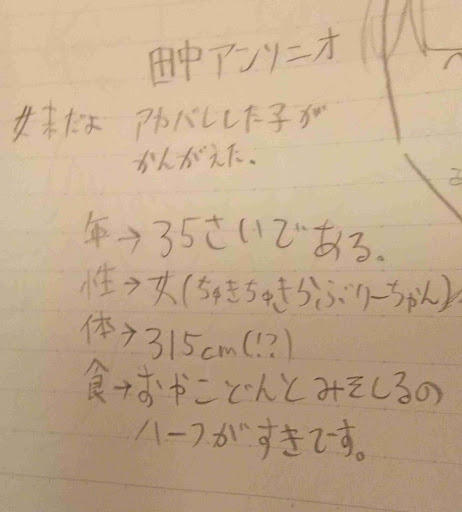 田中アンソニオ
妹だよ アカバレした子が
かんがえた。
年→35さいである。
性→女(ちゅきちゅきらぶりーちゃん)
体→315cm(!?)
食→おやこどんとみそしるの
ハーフがすきです。